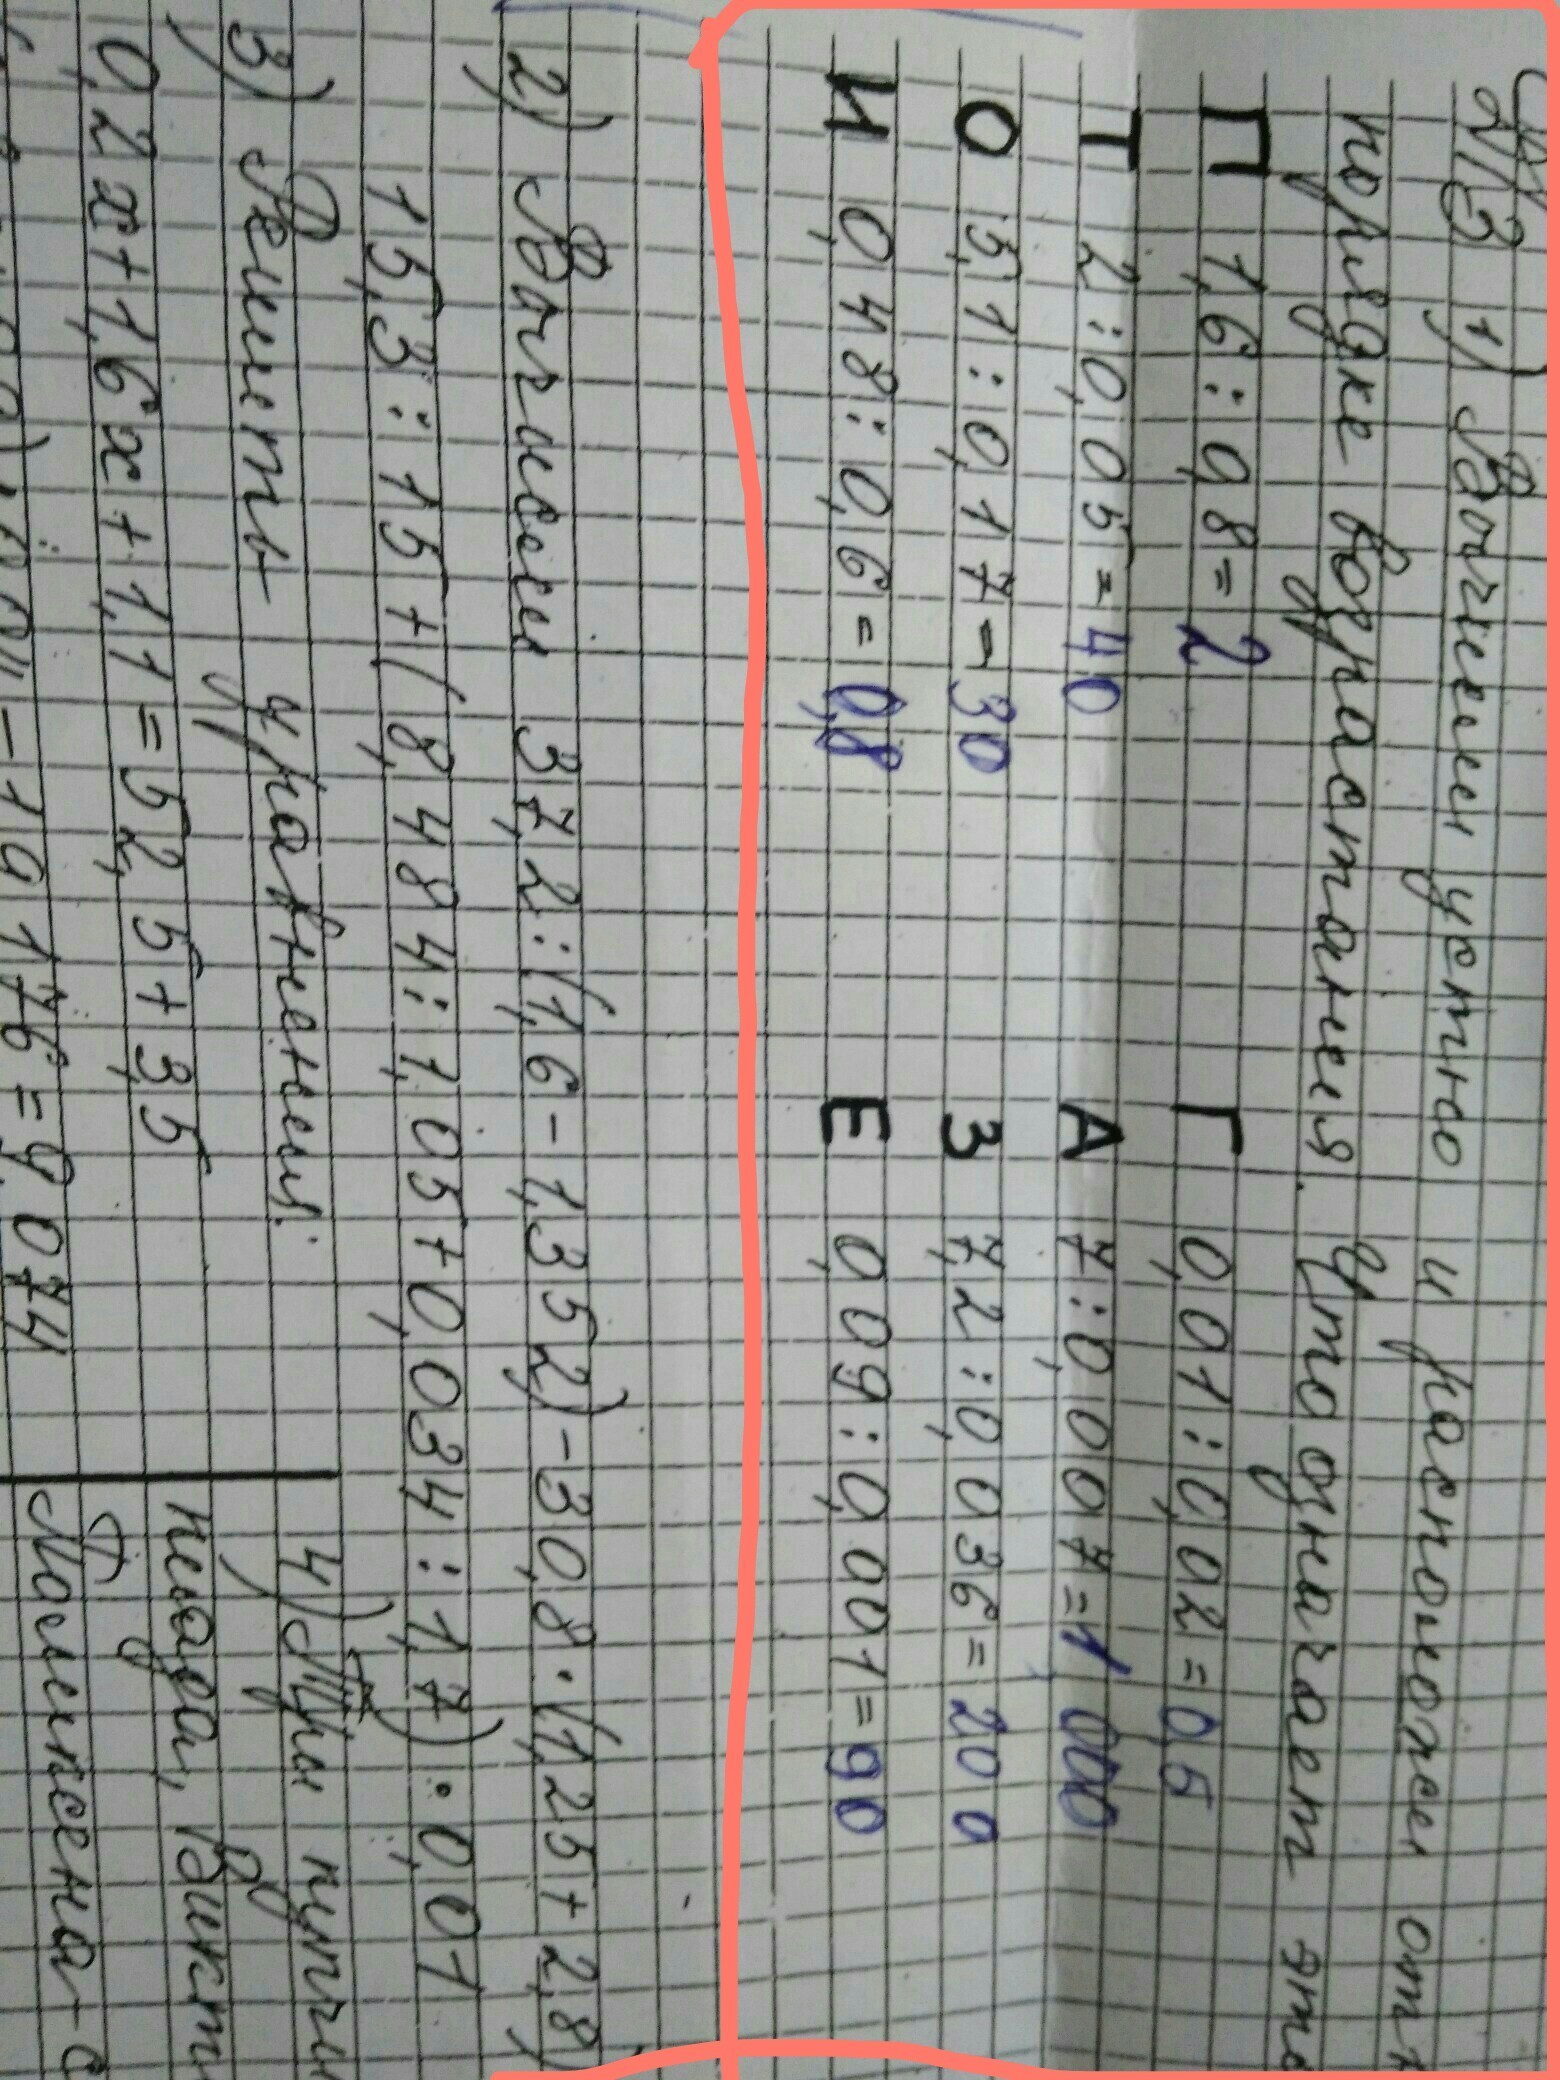 Д/З 1) Вычисли устно и расположи от
порядке возрастания. Что означает это
П 1,6:0,8=2 Г 0,01:0,02=0,5
Т 2:0,05=40 А 7:0,007=1000
О 5,1:0,17=30 З 7,2:0,036=200
И 0,48:0,6=0,8 Е 0,09:0,001=90
2) Вычисли 37,2:(1,6-1,352)-30,8·(1,25+2,8)
15,3:15+(8,484:1,05+0,034:1,7):0,01
3) Решить уравнения:
0,2x+1,6x+1,1=52,5+3,5
-19,176=9,074
4) Три купчи
Неара, Викт
Масленсена-с